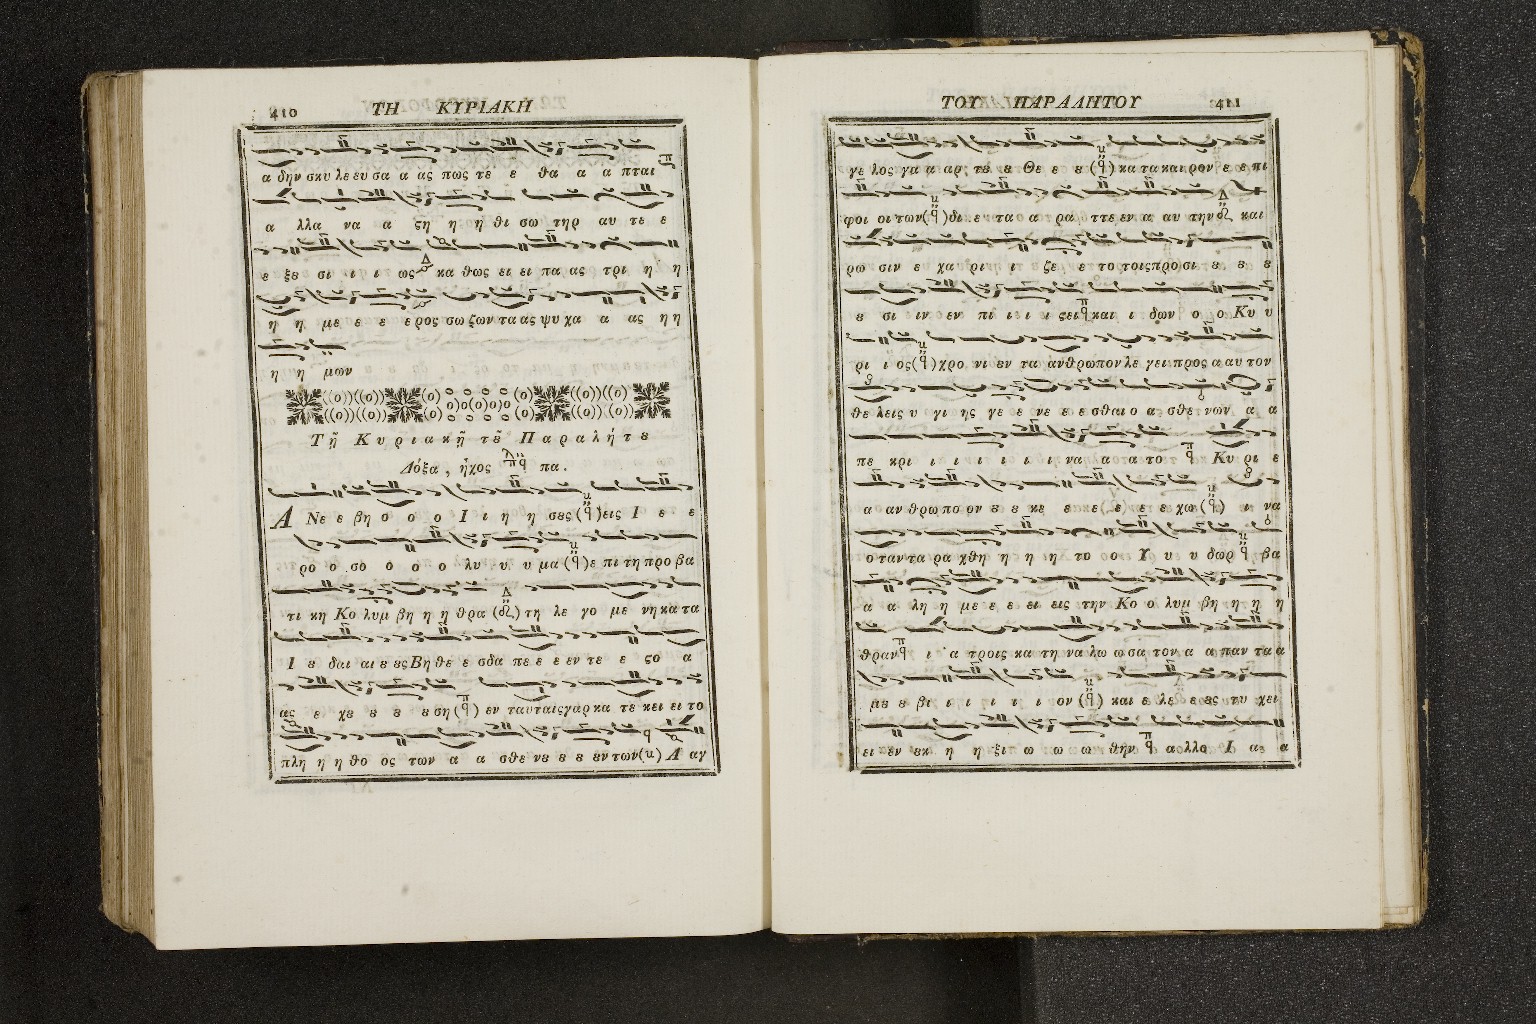 410 ΤΗ ΚΥΡΙΑΚΗ
α δην σκυ λε ευ σα α ας πως τε ε θα α α πται
α λλα να α ϛη η η θι σω τηρ αυ τε ε
ε ξȣ σι ι ι τ ως κα θως ει ει πα ας τρι η η
η η με ε ε ε ρος σω ζων τα ας ψυ χα α ας η η
η η μων
Τῇ Κυριακῇ τȣ͂ Παραλήτȣ
Δόξα, ἦχος πα.
Α Νε ε βη ο ο ο Ι ι η η σȣς εις Ι ε ε
ρο ο σο ο ο ο λυ υ υ μα ε πι τη προ βα
τι κη Κο λυμ βη η η θρα τη λε γο με νη κα τα
Ι ȣ δαι αι ȣ ȣς Βη θε ε σδα πε ε ε εν τε ε ϛο α
ας ε χȣ ȣ ȣ ȣ ȣ ση εν ταυ ταις γαρ κα τε κει ει το
πλη η η θο ος των α α σθε νȣ ȣ ȣ ȣν των Α αγ
ΤΟΥ ΠΑΡΑΛΗΤΟΥ 411
γε λος γα α αρ τȣ ȣ Θε ε ȣ κα τα και ρον ε ε πι
φοι οι των δι ε τα α τρα ττε εν α αυ την και
ρω σιν ε χα ρι ι ι ζε ε το τοις προ σι ȣ ȣ ȣ
ȣ σι ιν εν πι ι ι ι ϛει και ι δων ο ο Κυ υ
ρι ι ος χρο νι εν τα ανθρωπον λε γει προς α αυ τον
θε λεις υ γι ης γε ε νε ε ε σθαι ο α σθε νων α α
πε κρι ι ι ι ι ι ι να α α τα το Κυ ρι ε
α αν θρω πο ον ȣ ȣ κε ε ε ε χω ι να
ο ταν τα ρα χθη η η η το ο Υ υ υ δωρ βα
α α λη η με ε ε ει εις την Κο ο λυμ βη η η η
θραν ι α τροις κα τη να λω ω σα τον α α παν τα α
μȣ ȣ βι ι ι ι ι ι ον και ε λε ε ȣς τυ χει
ει εν ȣκ η η ξι ω ω ω ω θην αλλο Ι α α